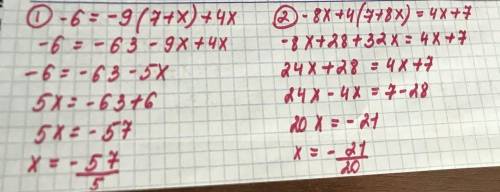 ① -6 = -9(7+x)+4x
-6 = -63 - 9x+4x
-6 = -63 - 5x
5x = -63+6
5x = -57
x = - 57/5
② -8x+4(7+8x) = 4x+7
-8x+28+32x = 4x+7
24x+28 = 4x+7
24x-4x = 7-28
20x = -21
x = - 21/20